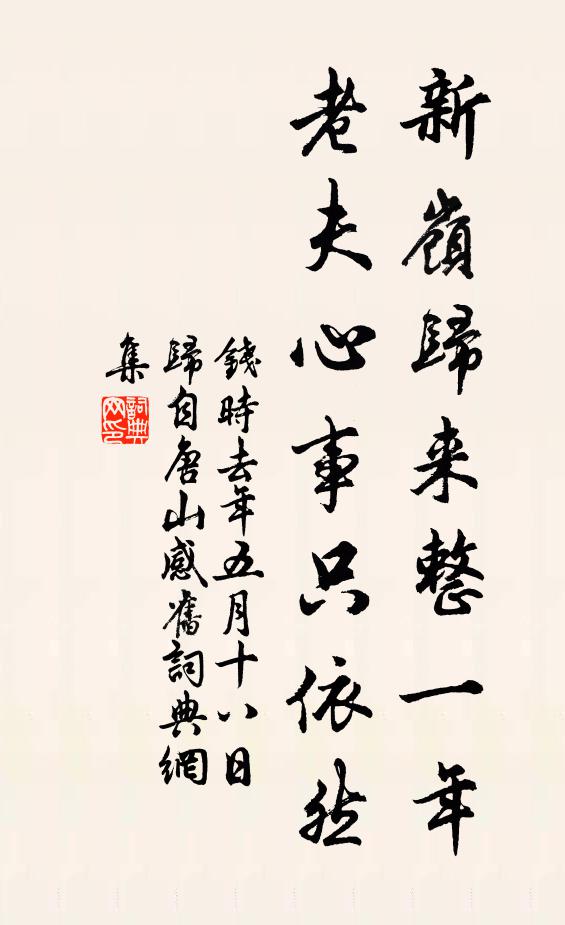 新嶺歸来整一年
老夫心事只依然
錢時去年五月十八日
歸自唐山感舊詞典網
集
詞典網印